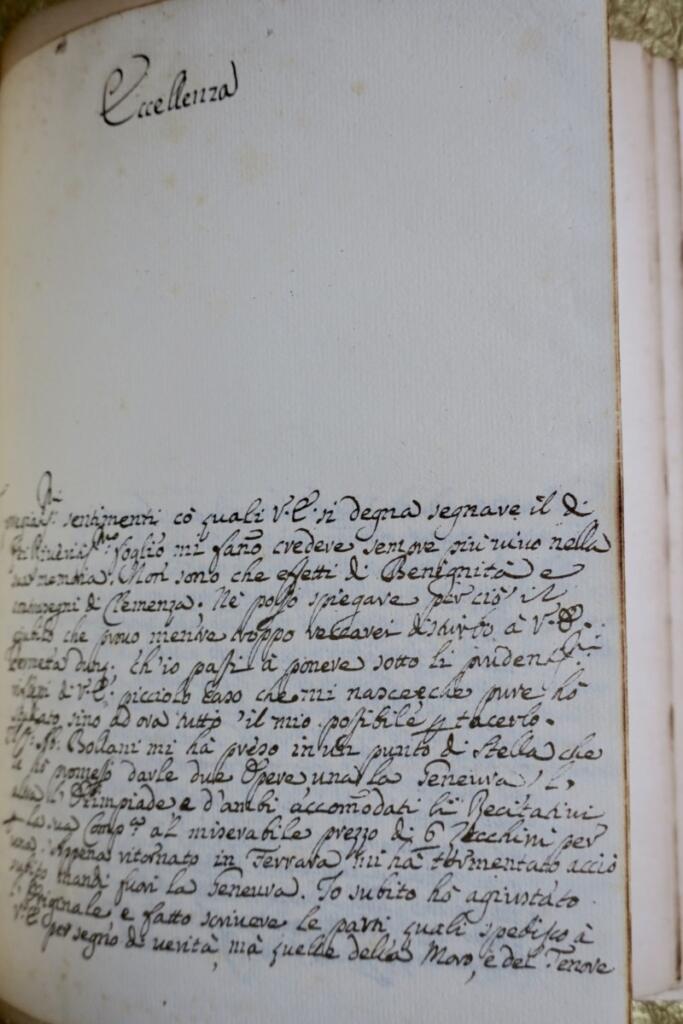 Eccellenza
sentimenti cò quali V. E. si degna segnare il di
foglio mi fanò credere sempre più vivo nella
sua memoria. Non sono che effetti di Benignità e
di Clemenza; Nè posso spiegare perciò il
giubilo che provo mentre troppo reccarei disturbo à V. E.
ch'io passi à ponere sotto li
di V. E. picciolo caso che mi nasce, e che pure hò
sino ad ora tutto il mio possibile p tacerlo.
Ab. Bollani mi hà preso in un punto di Stella che
hò promesso darle due Opere una la Genevra, l'
altra l'Olimpiade e d'ambi accomodati li Recitativi
la sua Comp. al miserabile prezzo di 6 Zecchini per
una. Appena ritornato in Ferrara mi hà tormentato acciò
subito mandi fuori la Genevra. Io subito hò agiustato
l'Originale e fatto scrivere le parti, quali spedisco à
V. E. per segno di verità, mà quelle della Moro, e del Tenore